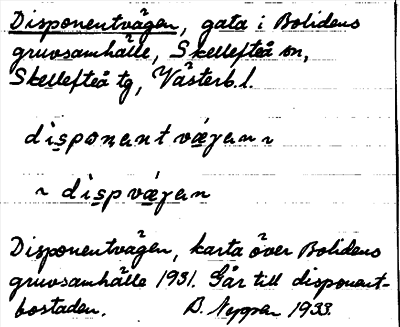 Disponentvägen, gata i Bolidens
gruvsamhälle, Skellefteå sn,
Skellefteå tg, Västerb. l.
disponentvægan ~
~ dispvægan
Disponentvägen, karta över Bolidens
gruvsamhälle 1931. Går till disponent-
bostaden. 1933.